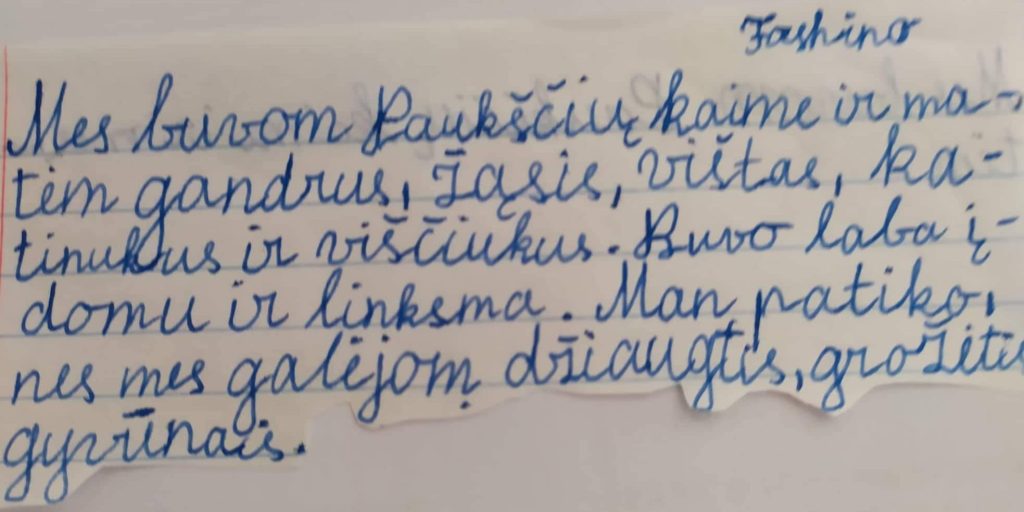 Fashino
Mes buvom Paukščių kaime ir ma-
tėm gandrus, žąsis, vištas, ka-
tinukus ir viščiukus. Buvo laba į-
domu ir linksma. Man patiko,
nes mes galėjom džiaugtis, grožėtis
gyvūnais.